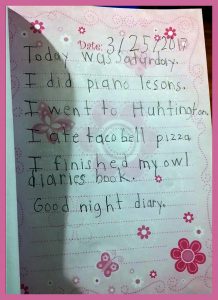 Date: 3/25/2017
Today was Saturday.
I did piano lesons.
I went to Huntington
I ate taco bell pizza
I finished my owl
diaries book.
Good night diary.